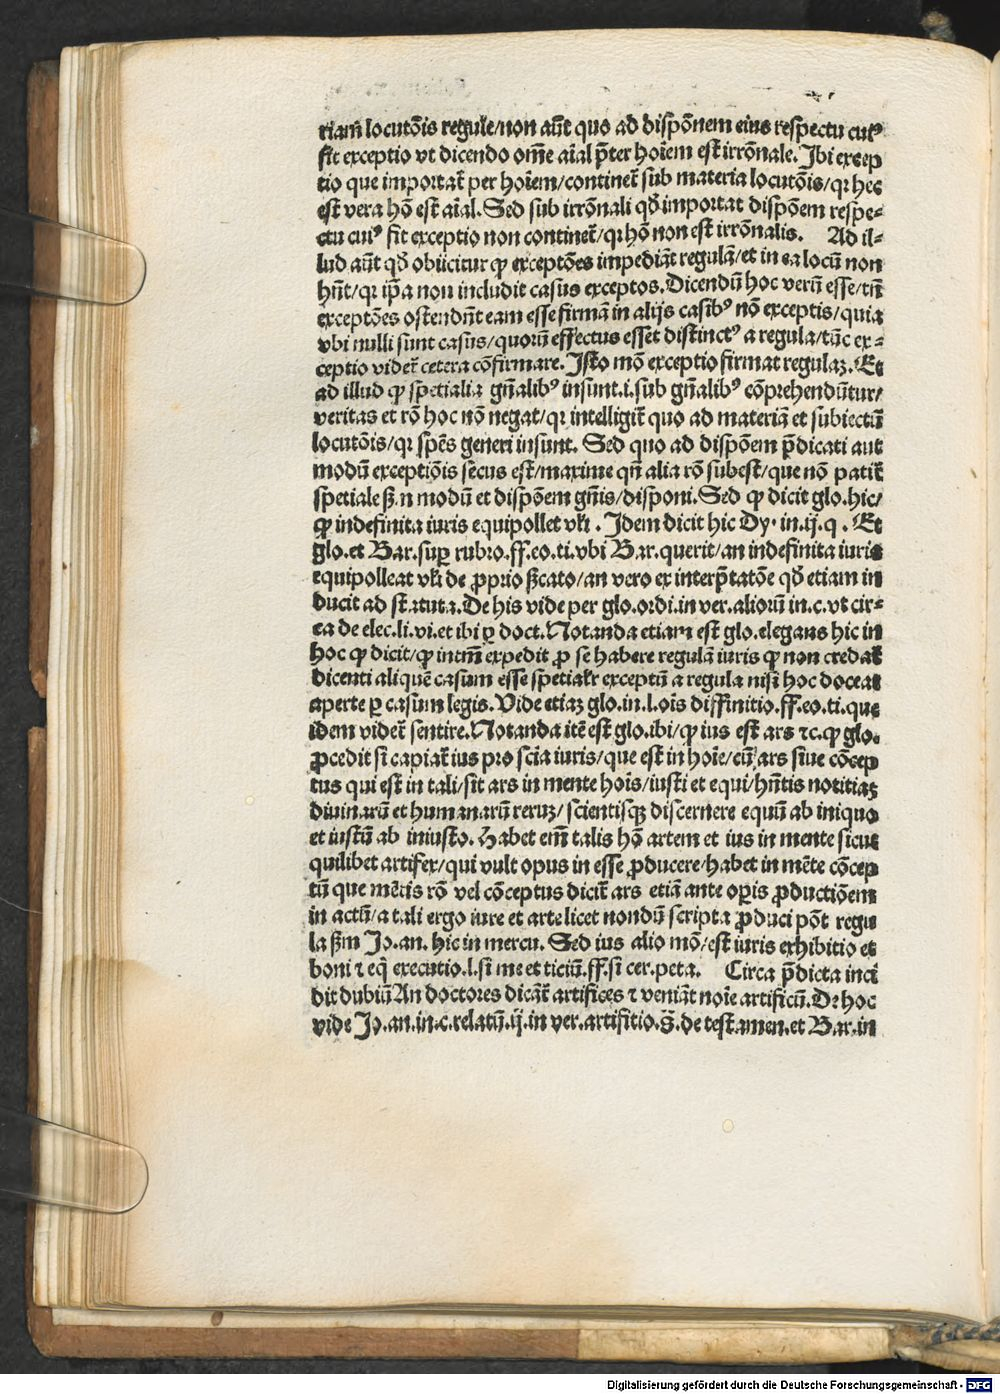 riam̄ locutōis regule/non aūt quo ad dispōnem eius respectu cuiꝰ
fit exceptio vt dicendo om̄e aīal p̄ter hoīem est irrōnale. Ibi excep
tio que importat̄ per hoīem/continet̄ sub materia locutōis/qꝛ hec
est vera hō est aīal. Sed sub irrōnali qd̄ importat dispōem respe⸗
ctu cuiꝰ fit exceptio non continet̄/qꝛ hō non est irrōnalis. Ad il⸗
lud aūt qd̄ obiicitur ꝙ exceptōes impediāt regulā/et in ea locū non
hn̄t/qꝛ ip̄a non includit casus exceptos. Dicendū hoc verū esse/tn̄
exceptōes ostendūt eam esse firmā in alijs casibꝰ nō exceptis/quia
vbi nulli sunt casus/quorū effectus esset distinctꝰ a regula/tūc ex⸗
ceptio videt̄ cetera cōfirmare. Isto mō exceptio firmat regulaꝫ. Et
ad illud ꝙ spetialia gn̄alibꝰ insunt.i.sub gn̄alibꝰ cōprehendūtur/
veritas et rō hoc nō negat/qꝛ intelligit̄ quo ad materiā et subiectū
locutōis/qꝛ spēs generi insunt. Sed quo ad dispōem p̄dicati aut
modū exceptiōis secus est/maxime qn̄ alia rō subest/que nō patit̄
spetiale ẜm modū et dispōem gn̄is/disponi. Sed ꝙ dicit glo.hic/
ꝙ indefinita iuris equipollet vl̄i. Idem dicit hic Dy.in.ij.q. Et
glo.et Bar.suꝑ rubro.ff.eo.ti.vbi Bar.querit/an indefinita iuris
equipolleat vl̄i de proprio ẜcato/an vero ex interp̄tatōe qd̄ etiam in
ducit ad statuta. De his vide per glo.ordi.in ver.aliorū in.c.vt cir⸗
ca de elec.li.vi.et ibi ꝑ doct. Notanda etiam est glo.elegans hic in
hoc ꝙ dicit/ꝙ intm̄ expedit ꝓ se habere regulā iuris ꝙ non credat̄
dicenti aliquē casum esse spetialr̄ exceptū a regula nisi hoc doceat
aperte ꝑ casum legis. Vide etiaꝫ glo.in.l.oīs diffinitio.ff.eo.ti.que
idem videt̄ sentire. Notanda itē est glo.ibi/ꝙ ius est ars ⁊c.ꝙ glo.
ꝓcedit si capiat̄ ius pro scīa iuris/que est in hoīe/cū ars siue cōcep
tus qui est in tali/sit ars in mente hoīs/iusti et equi/hn̄tis notitiaꝫ
diuinarū et humanarū reruꝫ/scientisqꝫ discernere equū ab iniquo
et iustū ab iniusto. Habet em̄ talis hō artem et ius in mente sicut
quilibet artifex/qui vult opus in esse ꝓducere/habet in mēte cōcep
tū que mētis rō vel cōceptus dicit̄ ars etiā ante oꝑis ꝓductiōem
in actū/a tali ergo iure et arte licet nondū scripta ꝓduci pōt regu
la ẜm Jo.an. hic in mercu. Sed ius alio mō/est iuris exhibitio et
boni ⁊ eq̄ executio.l.si me et ticiū.ff.si cer.peta. Circa p̄dicta inci
dit dubiū An doctores dicāt̄ artifices ⁊ veniāt noīe artificū. De hoc
vide Jo.an.in.c.relatū.ij.in ver.artifitio.s̄.de testamen.et Bar.in
Digitalisierung gefördert durch die Deutsche Forschungsgemeinschaft - DFG